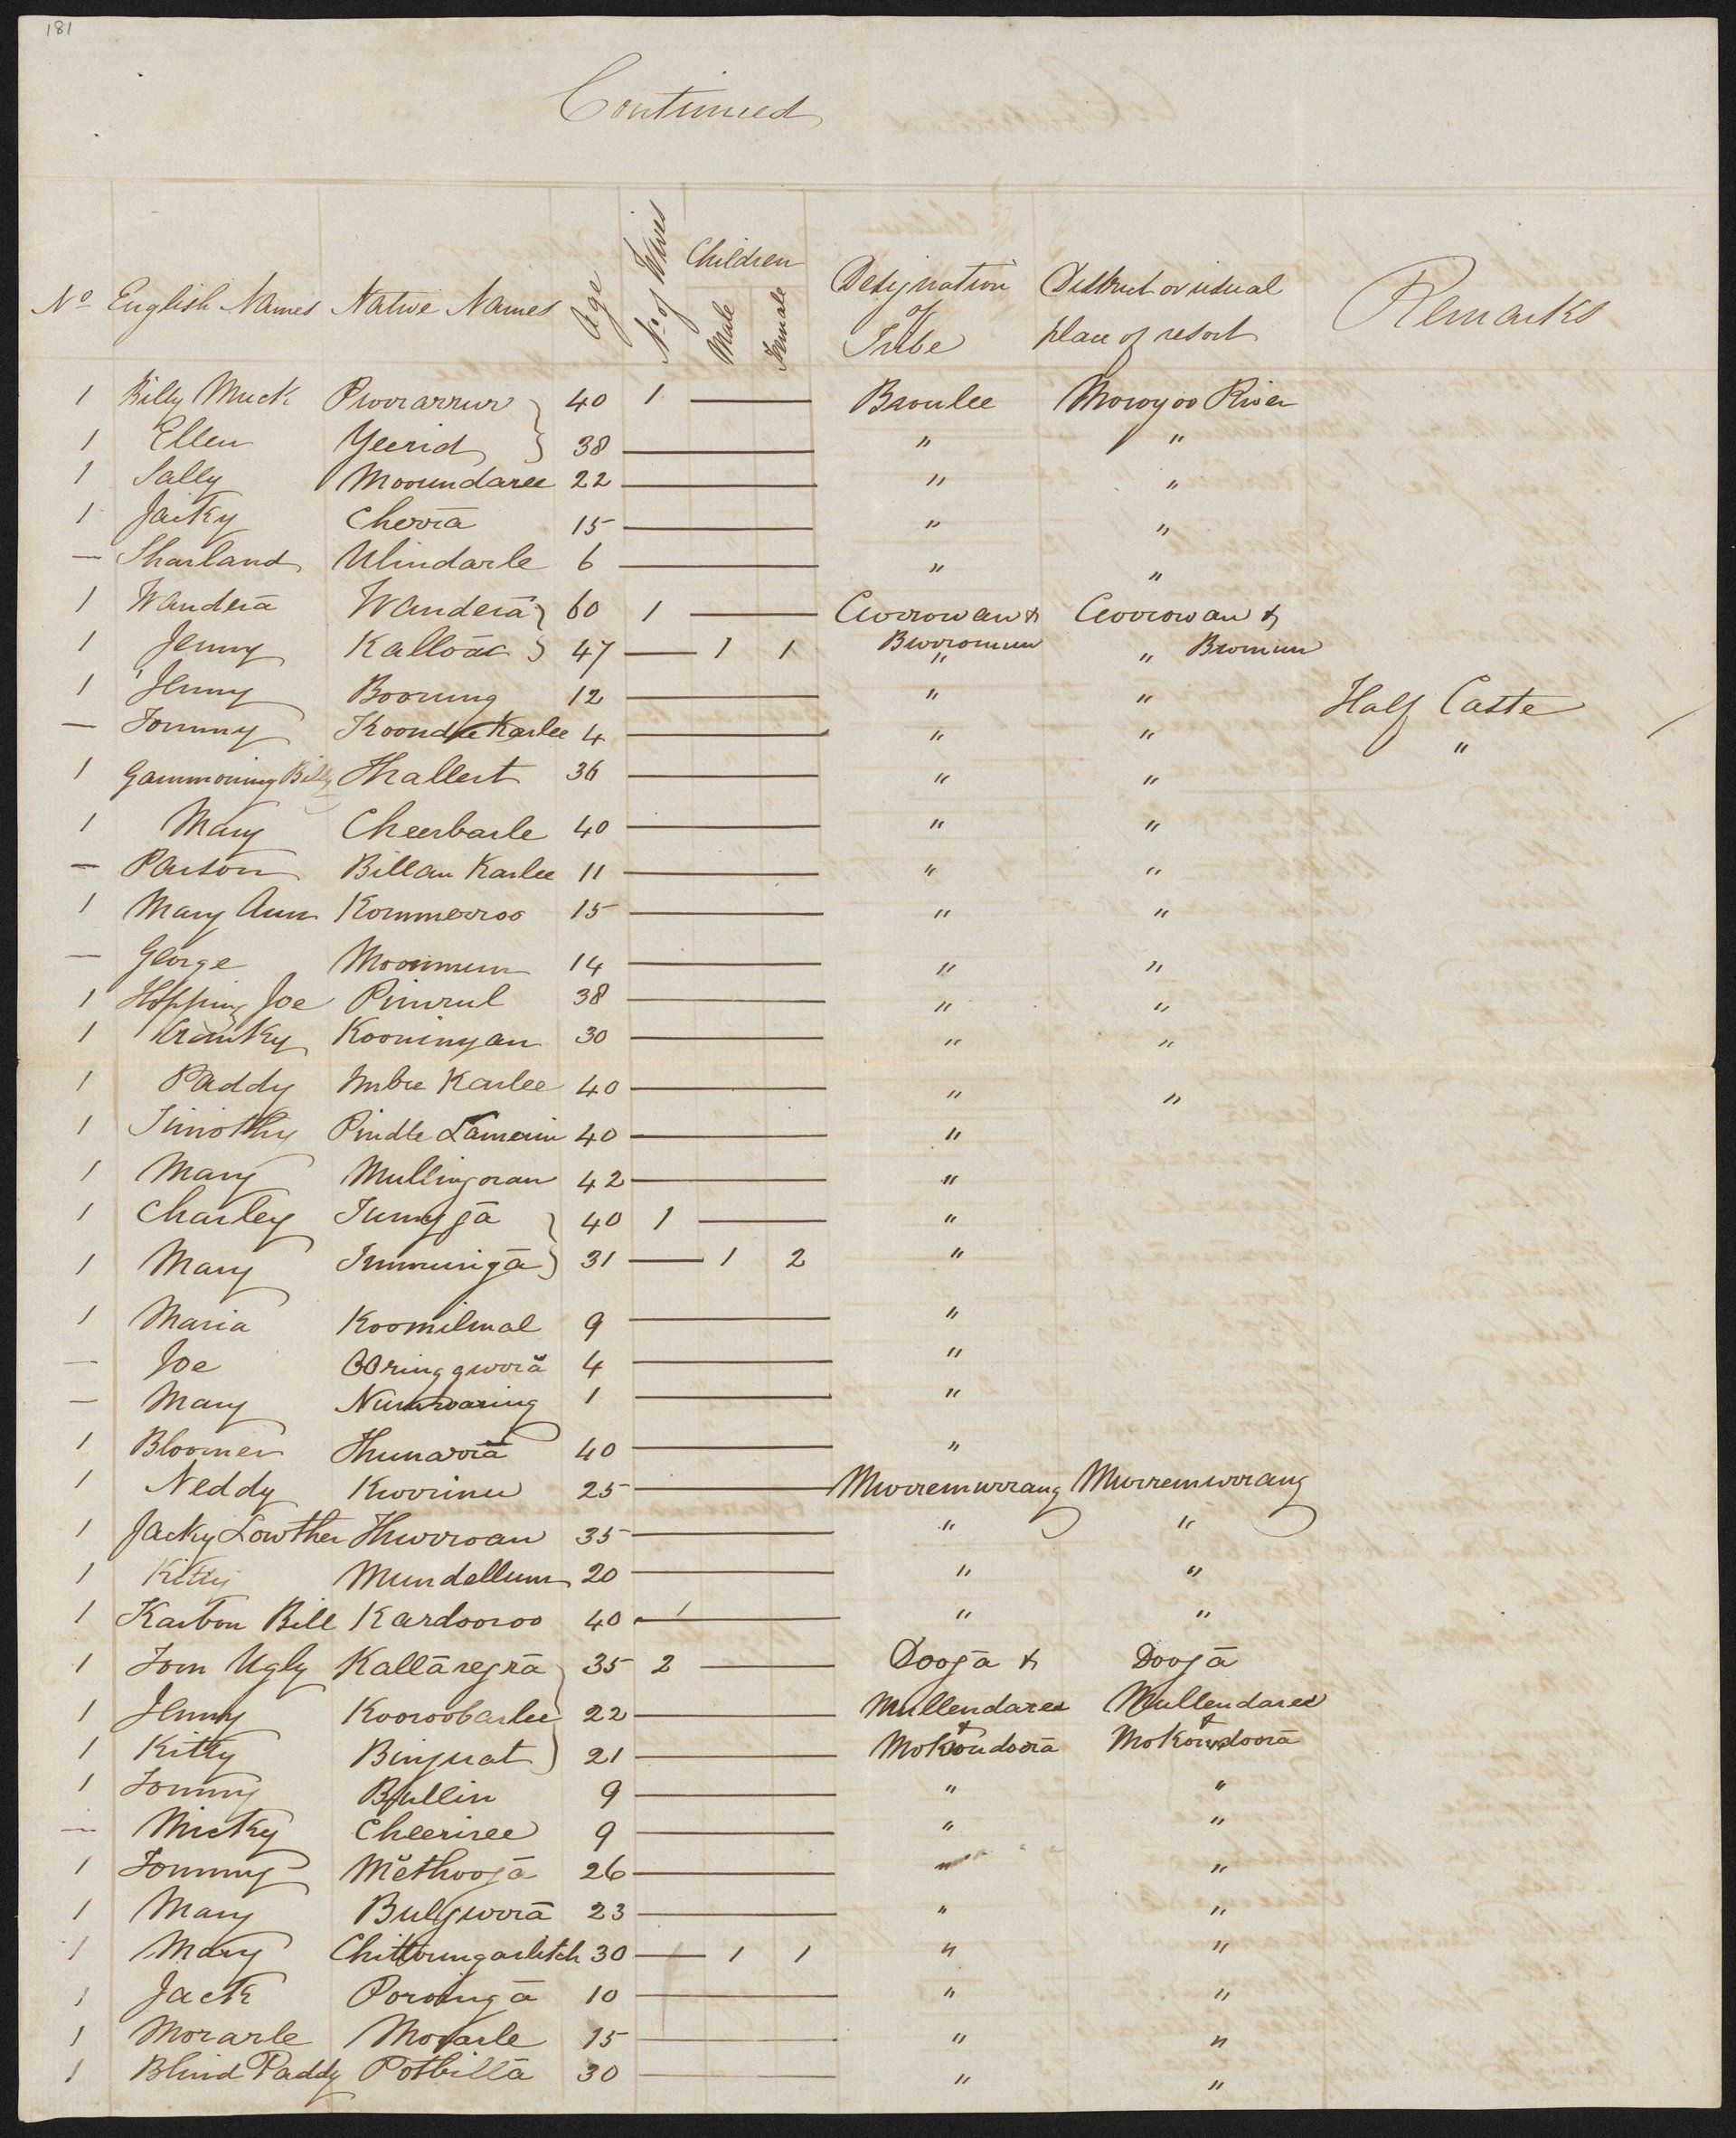 181
Continued
No English Names Native Names Age No of Wives Children Male Female Designation of Tribe District or usual place of resort Remarks
1 Billy Muck Pwoorarrur } 40 1 — Baoulee Mowoyoo River
1 Ellen Yeerid } 38 — " "
1 Sally Mooundaree 22 — " "
1 Jacky Cherrā 15 — " "
— Sharland Ulindarle 6 — " "
1 Wanderā Wanderā } 60 1 — Coorowan & Coorowan &
1 Jenny Kalloāc } 47 — 1 1 Burromun " " Bromun
1 Jenny Boorung 12 — " " Half Caste
— Tommy Koondee Karlee 4 — " " "
1 Gammoning Billy Thallert 36 — " "
1 Mary Cheerbarle 40 — " "
— Parson Billan Karlee 11 — " "
1 Mary Ann Kommerroo 15 — " "
— George Moonmum 14 — " "
1 Hopping Joe Pinrul 38 — " "
1 Cranky Kooninyan 30 — " "
1 Paddy Imbre Karlee 40 — " "
1 Timothy Pindle Lamerin 40 — "
1 Mary Mullingoran 42 — "
1 Charley Tumggā } 40 1 — "
1 Mary Immuningā } 31 — 1 2 "
1 Maria Koomilmal 9 — "
— Joe OOringgworā 4 — "
— Mary Nurrwaring 1 — "
1 Bloomer Thunavorā 40 — "
1 Neddy Kworinu 25 — Murremurrang Murremurrang
1 Jacky Lowther Thurroan 35 — " "
1 Kitty Mundellum 20 — " "
1 Karbon Bill Kardooroo 40 — 1 — " "
1 Tom Ugly Kallāregrā } 35 2 — Doogā & Doogā
1 Jenny Kooroobarlee 22 — Mullendaree Mullendaree
1 Kitty Binjuat } 21 — & Mokoudoorā & Mokowdoorā
1 Tommy Bullin 9 — " "
— Micky Cheerisee 9 — " "
1 Tommy Mĕthoojā 26 — " "
1 Mary Bulgworā 23 — " "
1 Mary Chittoungarlitch 30 — 1 1 " "
1 Jack Poroingā 10 — " "
1 Morarle Morarle 15 — " "
1 Blind Paddy Potbillā 30 — " "